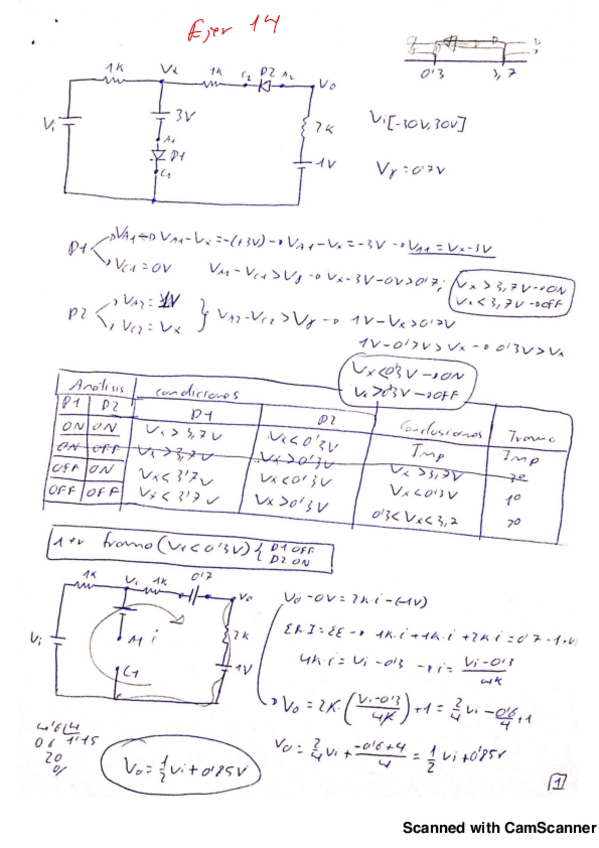 Ejer 14
0'3 3,7
1K Vx 1K C2 D2 A2 Vo
Vi 3V 2K Vi[-30V,30V]
A1
D1 1V Vγ = 0'7V
C1
D1 VA1 → VA1-Vx=-(+3V) → VA1-Vx=-3V → VA1=Vx-3V
VC1=0V VA1-VC1>Vγ → Vx-3V-0V>0'7; Vx>3,7V → ON
Vx<3,7V → OFF
D2 VA2=1V
VC2=Vx } VA2-VC2>Vγ → 1V-Vx>0'7V
1V-0'7V>Vx → 0'3V>Vx
Vx<0'3V → ON
Vx>0'3V → OFF
Análisis condiciones
D1 D2 D1 D2 Conclusiones Tramo
ON ON Vx>3,7V Vx<0'3V Imp Imp
ON OFF Vx>3,7V Vx>0'3V Vx>3,7V 3º
OFF ON Vx<3'7V Vx<0'3V Vx<0'3V 1º
OFF OFF Vx<3'7V Vx>0'3V 0'3<Vx<3,7 2º
1er tramo (Vx<0'3V) { D1 OFF
D2 ON
1K Vi 1K 0'7 Vo
Vi A1 i 2K
C1 1V
Vo-0V=2K·i-(-1V)
ΣR·I=ΣE → 1K·i+1K·i+2K·i=0'7-1+Vi
4K·i=Vi-0'3 → i=Vi-0'3/4K
Vo=2K·(Vi-0'3/4K)+1=2/4Vi-0'6/4+1
Vo=2/4Vi+-0'6+4/4=1/2Vi+0'85V
4'6 4
06 1'15
20
0/
Vo=1/2Vi+0'85V
1
Scanned with CamScanner